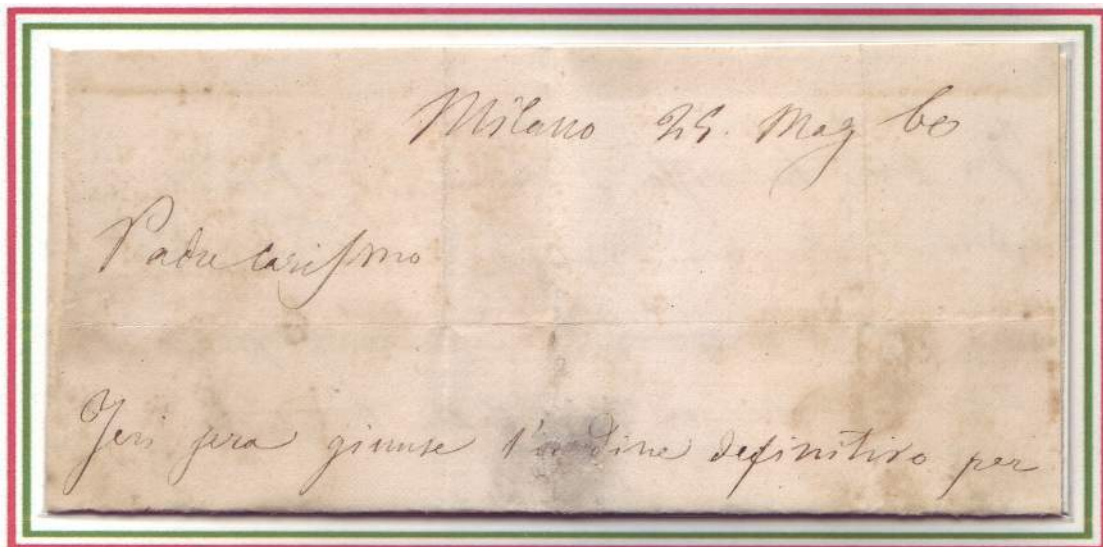 Milano 25. Mag 60
Padre carissimo
Jeri sera giunse l'ordine definitivo per